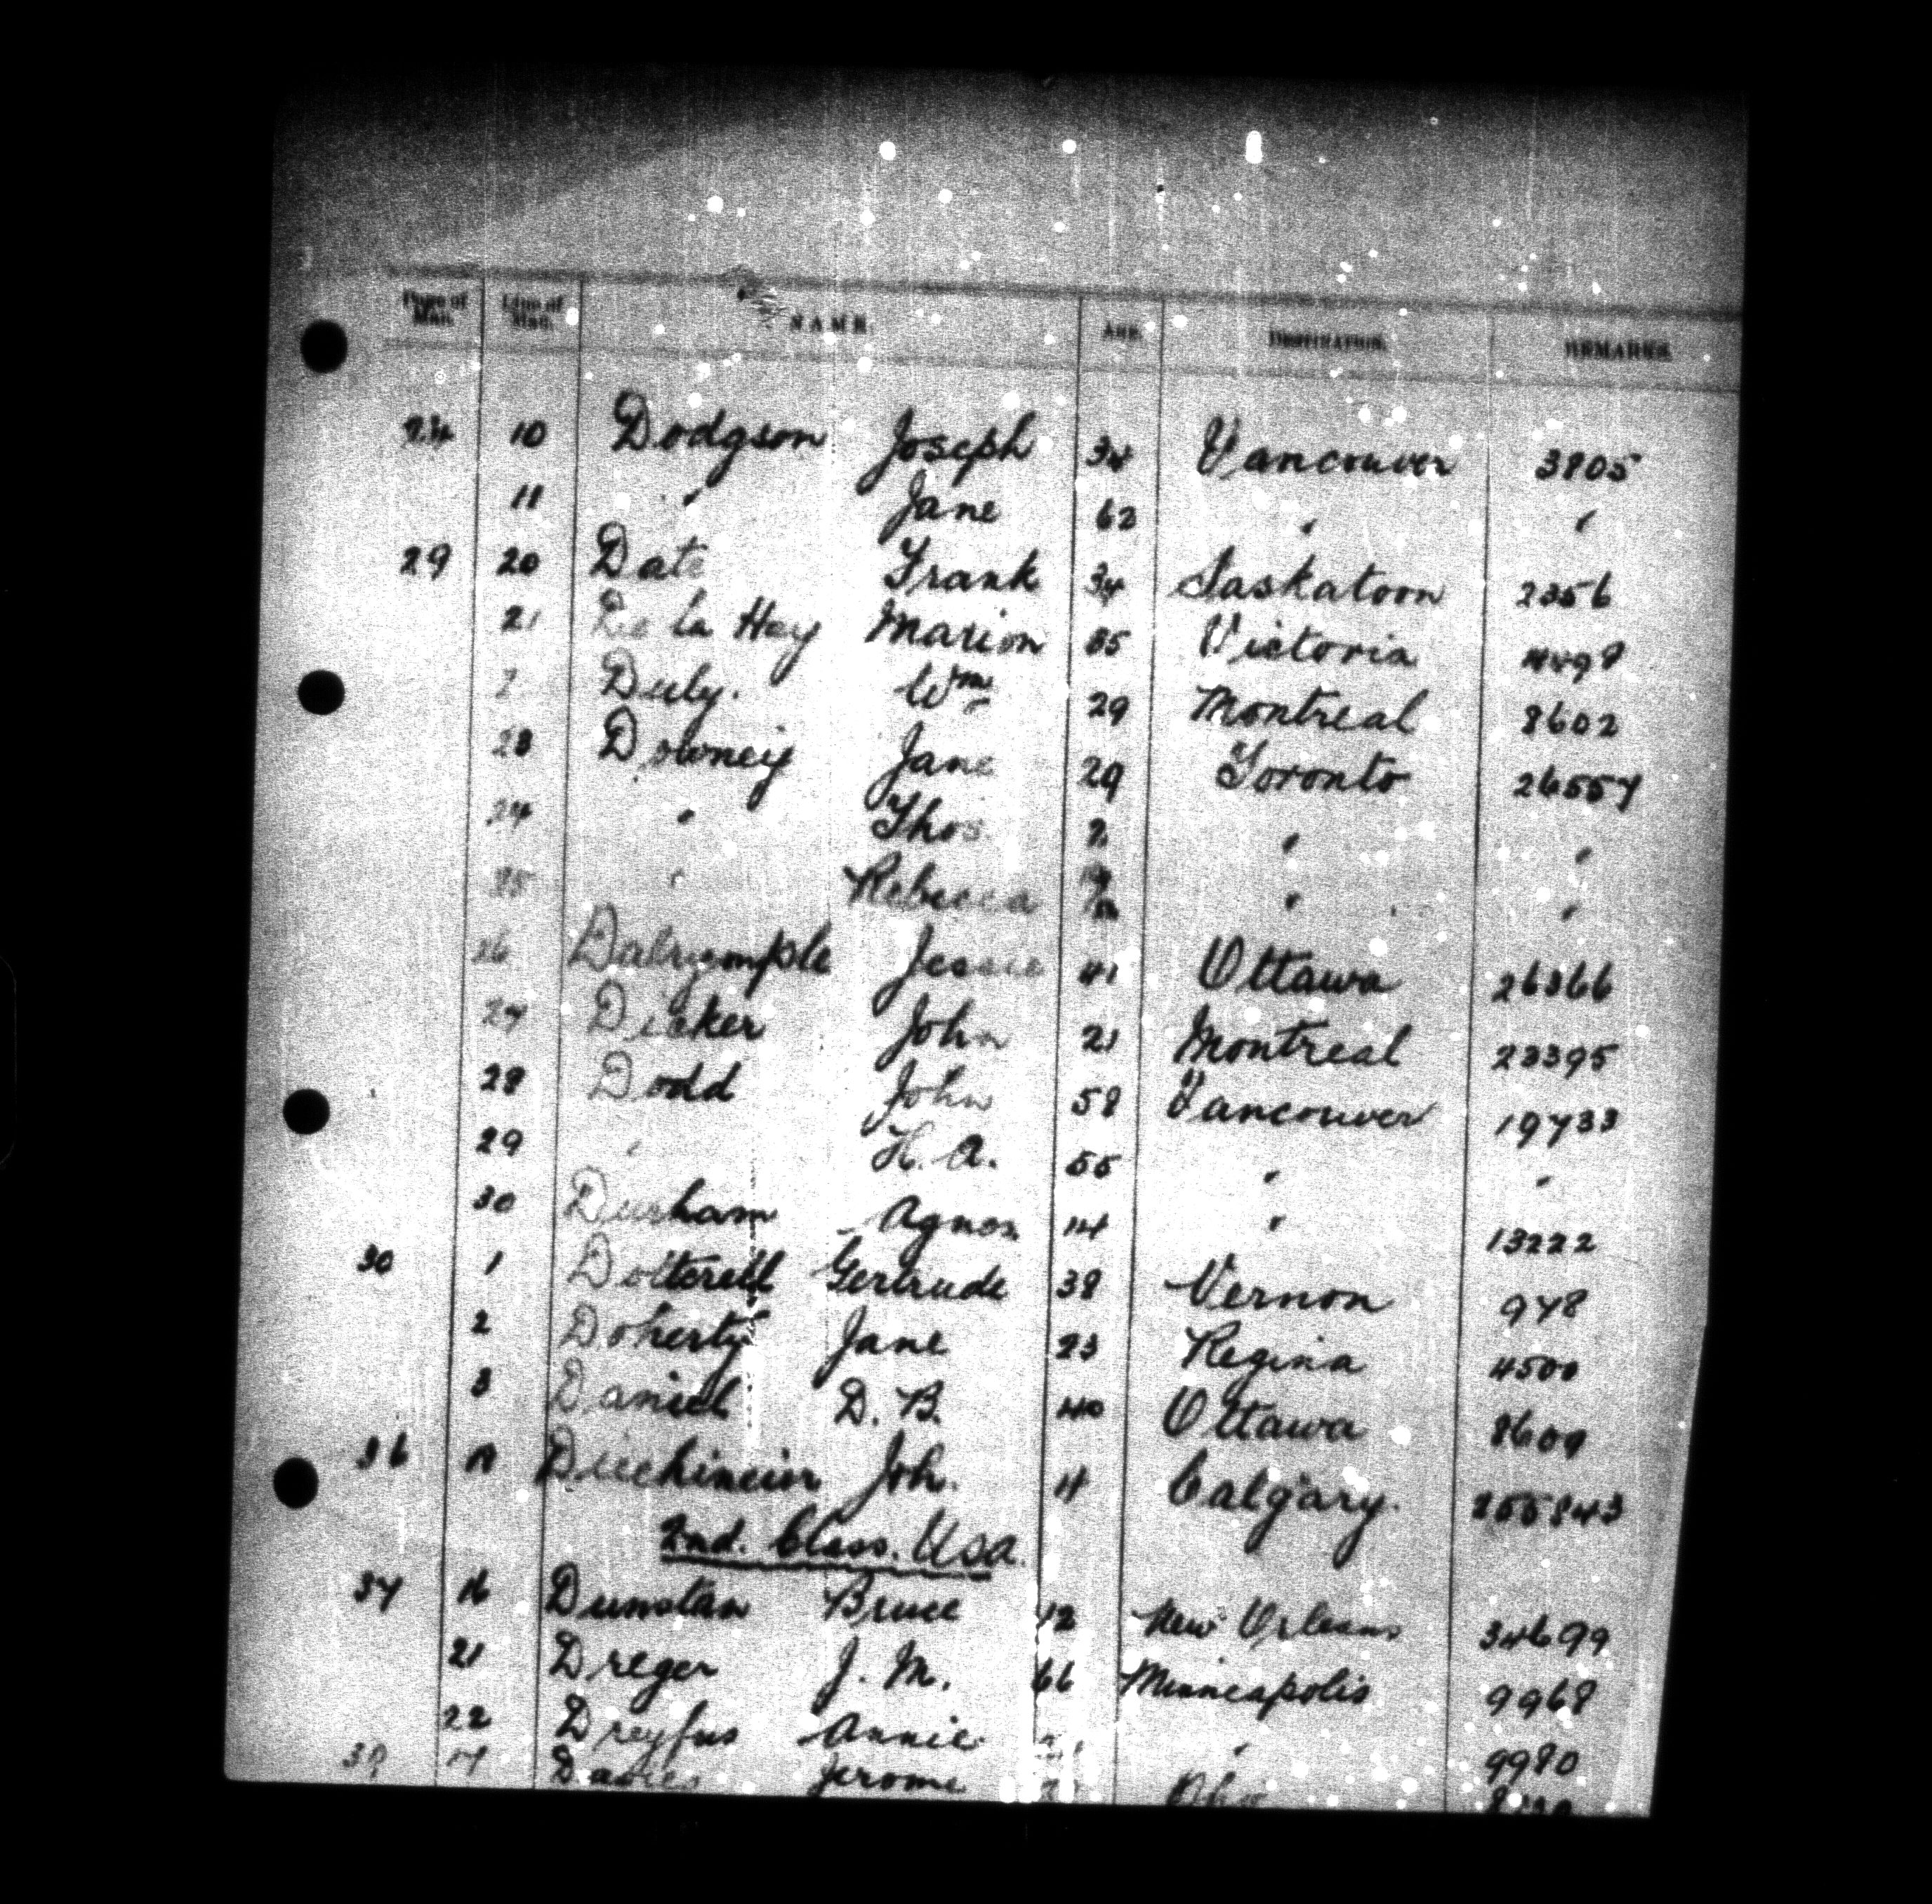 Page of Man. Line of Man. NAME. AGE. DESTINATION. REMARKS.
24 10 Dodgson Joseph 34 Vancouver 3805
11 " Jane 62 " "
29 20 Date Frank 34 Saskatoon 2356
21 De la Hey Marion 35 Victoria 4498
2 Duly. Wm 29 Montreal 8602
23 Downey Jane 29 Toronto 26557
24 " Thos 2 " "
25 " Rebecca " "
26 Dalrymple Jessie 41 Ottawa 26366
27 Dicker John 21 Montreal 23395
28 Dodd John 58 Vancouver 19733
29 " H. A. 55 " "
30 Durham Agnes 14 " 13222
30 1 Dotterell Gertrude 38 Vernon 978
2 Doherty Jane 23 Regina 4500
3 Daniel D. B. 40 Ottawa 8609
36 Joh. 4 Calgary. 255843
2nd. Class. Usa.
37 16 Dunstan Bruce 12 New Orleans 34699
21 Dreger J. M. 66 Minneapolis 9968
22 Dreyfus Annie " 9980
17 Davies Jerome